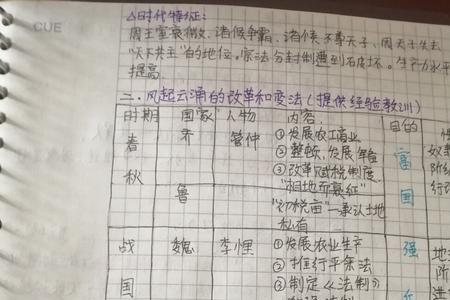 CUE
△时代特征:
周王室衰微、诸侯争霸、诸侯不尊天子、周天子失去
"天下共主"的地位。宗法分封制遭到破坏。生产力水平
提高。
二、风起云涌的改革和变法(提供经验教训)
时期 国家 人物 内容 目的
春秋 齐 管仲 ①发展农工商业
②整顿、发展军备
③改革赋税制度
"相地而衰征" 富国
鲁 "初税亩"—承认土地
私有
战国 魏 李悝 ①发展农业生产 强
②推行平籴法
③制定《法制》